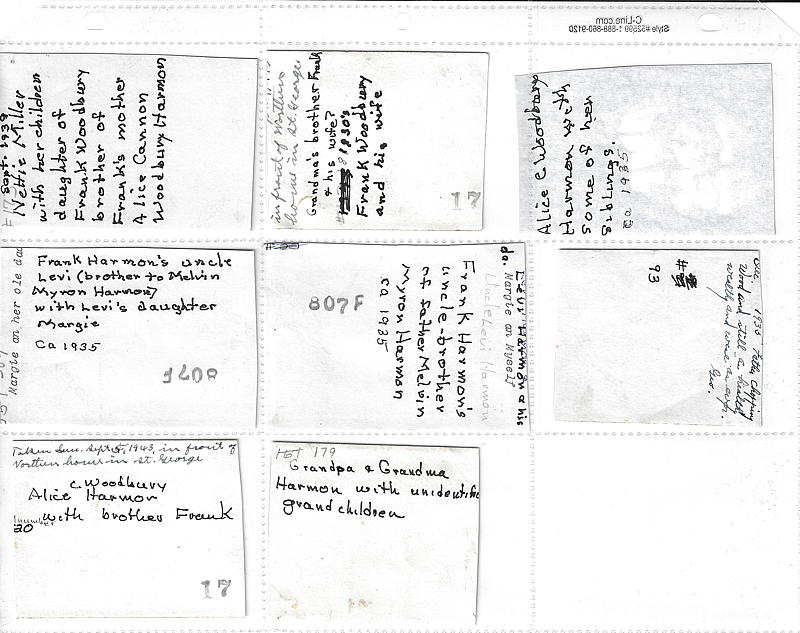 C-Line.com
Style #52599 1-888-860-9120
Sept. 1938
Nettie Miller
with her children
daughter of
Frank Woodbury
brother of
Frank's mother
Alice Cannon
Woodbury Harmon
in front of
home in St. George
Grandma's brother Frank
& his wife?
1930's
Frank Woodbury
and his wife
17
Alice C Woodbury
Harmon
some
siblings
ca 1935
Margie an her ole dad
Frank Harmon's uncle
Levi (brother to Melvin
Myron Harmon)
with Levi's daughter
Margie
Ca 1935
807F
Levi Harmon & his
da.
Margie an Myself
Uncle Levi Harmon
Frank Harmon's
uncle-brother
of father Melvin
Myron Harmon
ca 1935
807F
1935
Wood and still a
wealthy and
Geo.
93
Taken Sun. Sept 5, 1943, in front of
home in St. George
C. Woodbury
Alice Harmon
with brother Frank
number
20
17
179
Grandpa & Grandma
Harmon with
grandchildren